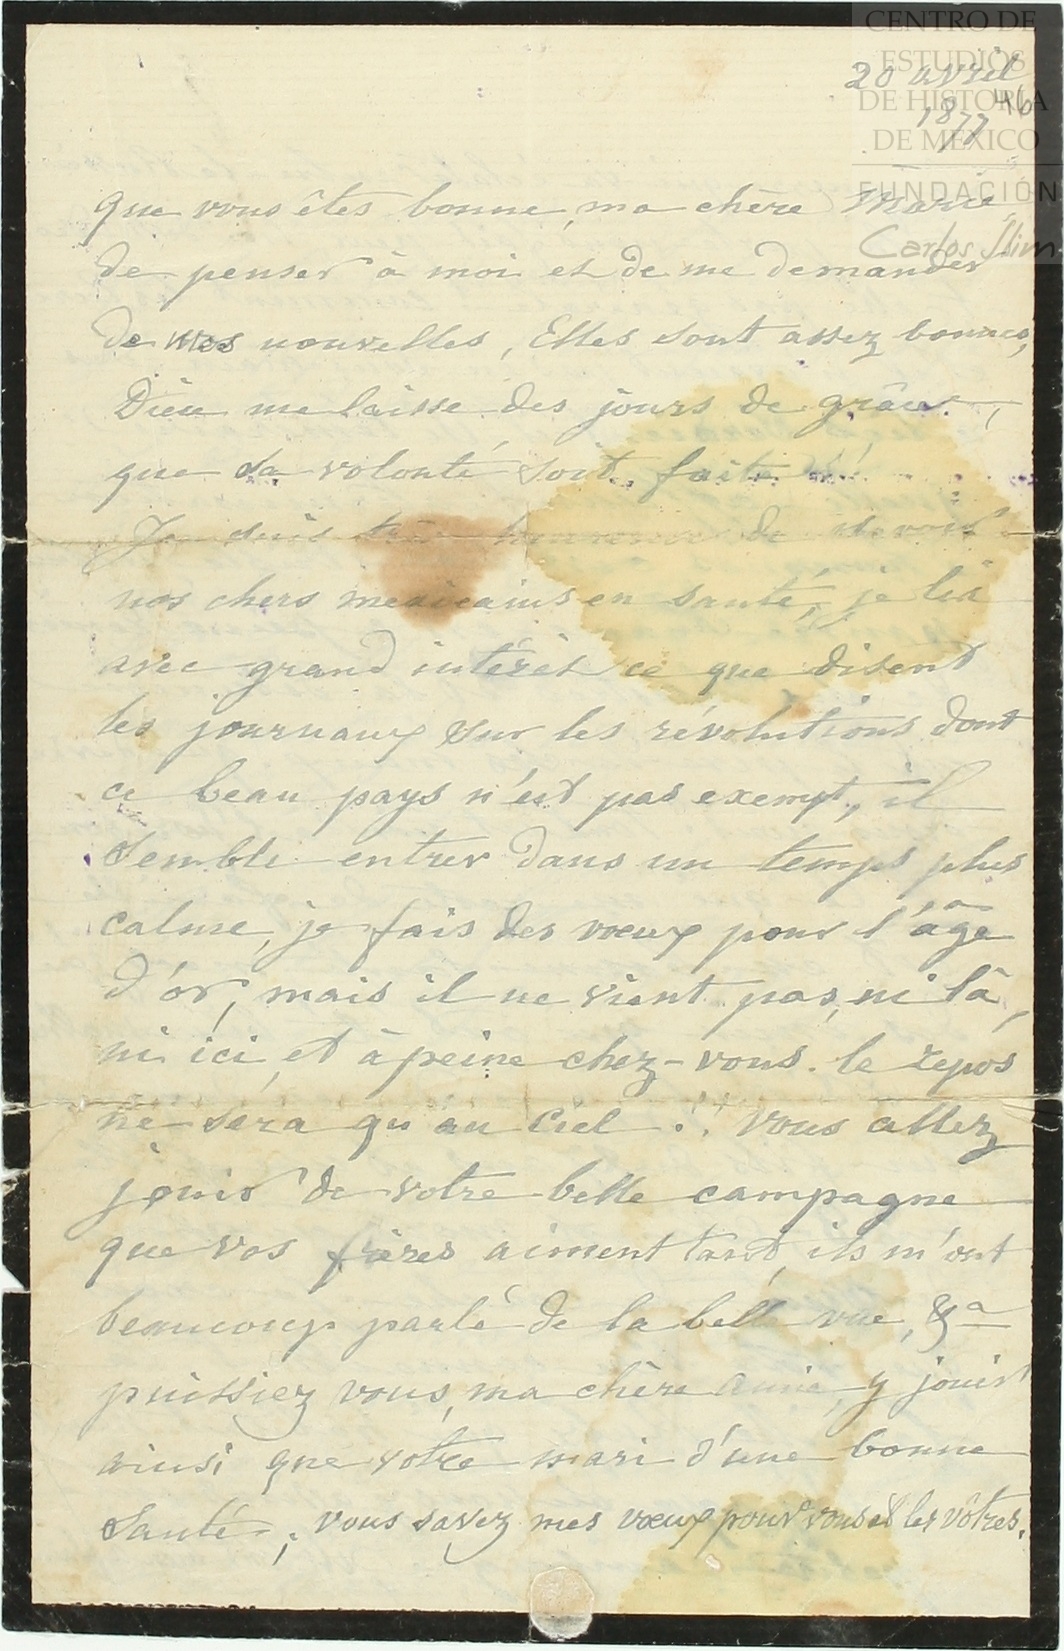 CENTRO DE
ESTUDIOS
DE HISTORIA
DE MÉXICO
FUNDACIÓN
Carlos Slim
20 avril
1877
46
que vous êtes bonne, ma chère Marie,
de penser à moi et de me demander
de mes nouvelles, Elles sont assez bonnes,
Dieu me laisse des jours de grâce,
que sa volonté soit faite !
Je suis très heureuse de savoir
nos chers mexicains en santé, je lis
avec grand intérêt ce que disent
les journaux sur les révolutions dont
ce beau pays n'est pas exempt, il
semble entrer dans un temps plus
calme, je fais des vœux pour l'âge
d'or, mais il ne vient pas, ni là,
ni ici, et à peine chez-vous. le repos
ne sera qu'au Ciel !. Vous allez
jouir de votre belle campagne
que vos frères aiment tant, ils m'ont
beaucoup parlé de la belle vue, &a
puissiez vous, ma chère amie, y jouir
ainsi que votre mari d'une bonne
santé ; vous savez mes vœux pour vous et les vôtres.